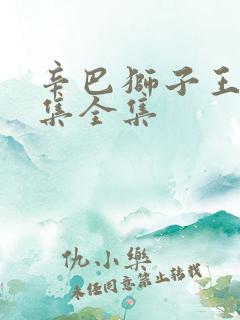 辛巴獅子王
集全集
仇小樂
未经同意禁止转载